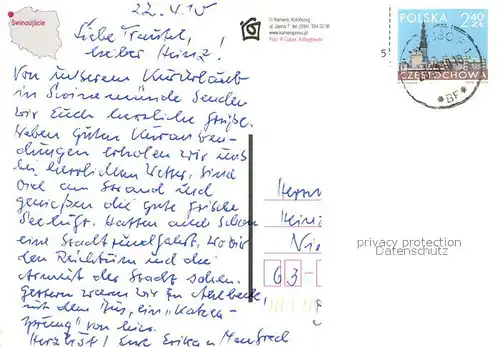 Świnoujście
22.4.15
Liebe Traudel,
lieber Heinz!
Von unserem Kurzurlaub
in Swinemünde senden
wir Euch herzliche Grüße.
Neben guten Kuranwen-
dungen erholen wir uns
bei herrlichem Wetter. Sind
viel am Strand und
genießen die gute frische
Seeluft. Hatten auch schon
eine Stadtrundfahrt. Wo wir
den Reichtum und die
Armut der Stadt sahen.
Gestern waren wir in Ahlbeck,
mit dem Bus, ein "Katzen-
sprung" von hier.
Herzlichst! Eure Erika u. Manfred
© Kamera, Kołobrzeg
www.kamerapress.pl
POLSKA 2,40
ZŁ
CZĘSTOCHOWA
5
Herrn
Hein
Nie
63-
privacy protection
Datenschutz